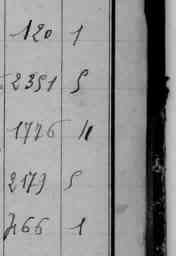 120 1
2351 5
1776 4
2179 5
466 1